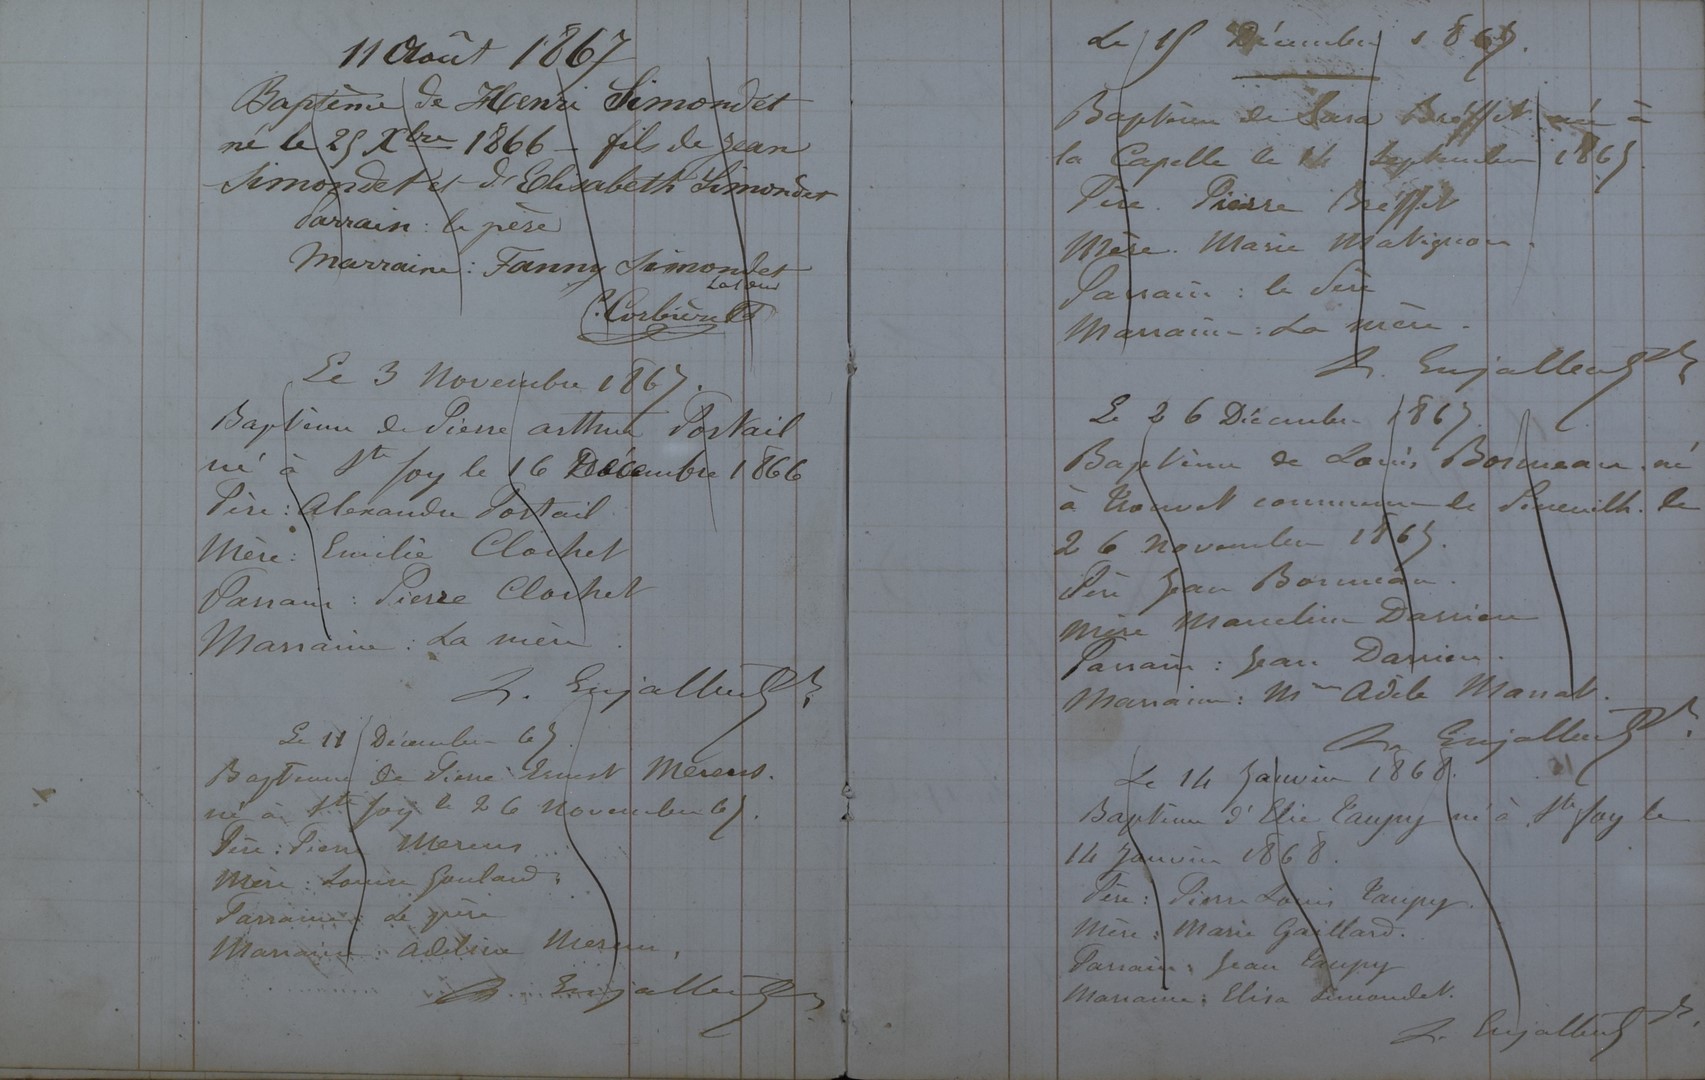 11 Août 1867
Baptême de Henri Simondet
né le 25 Xbre 1866 - fils de Jean
Simondet et d'Elisabeth Simondet
Parrain : le père
Marraine : Fanny Simondet
La sœur
C. Corbière
Le 3 Novembre 1867.
Baptême de Pierre arthur Portail
né à Ste foy le 16 Décembre 1866
Père : Alexandre Portail
Mère : Emilie Clochet
Parrain : Pierre Clochet
Marraine : La mère.
L. Enjalbert
Le 11 Décembre 67
Baptême de Pierre Ernest
né à Ste foy le 26 Novembre 67.
Père : Pierre
Mère : Louise Goulard.
Parrain : Le père
Marraine : Adeline
L. Enjalbert
Le 15 Décembre 1867.
Baptême de Sara née à
la Capelle le 14 Septembre 1867
Père. Pierre
Mère. Marie Matignon.
Parrain : le Père
Marraine : La mère.
L. Enjalbert
Le 26 Décembre 1867.
Baptême de Louis Bonneau né
à commune de Pineuilh. le
26 Novembre 1867.
Père Jean Bonneau.
Mère Darrieu
Parrain : Jean Darrieu.
Marraine : Mme Adèle
L. Enjalbert
Le 14 Janvier 1868.
Baptême d'Elie Taupy né à Ste foy le
14 Janvier 1868.
Père : Pierre Louis Taupy.
Mère : Marie Gaillard.
Parrain : Jean Taupy
Marraine : Elisa Simondet.
L. Enjalbert